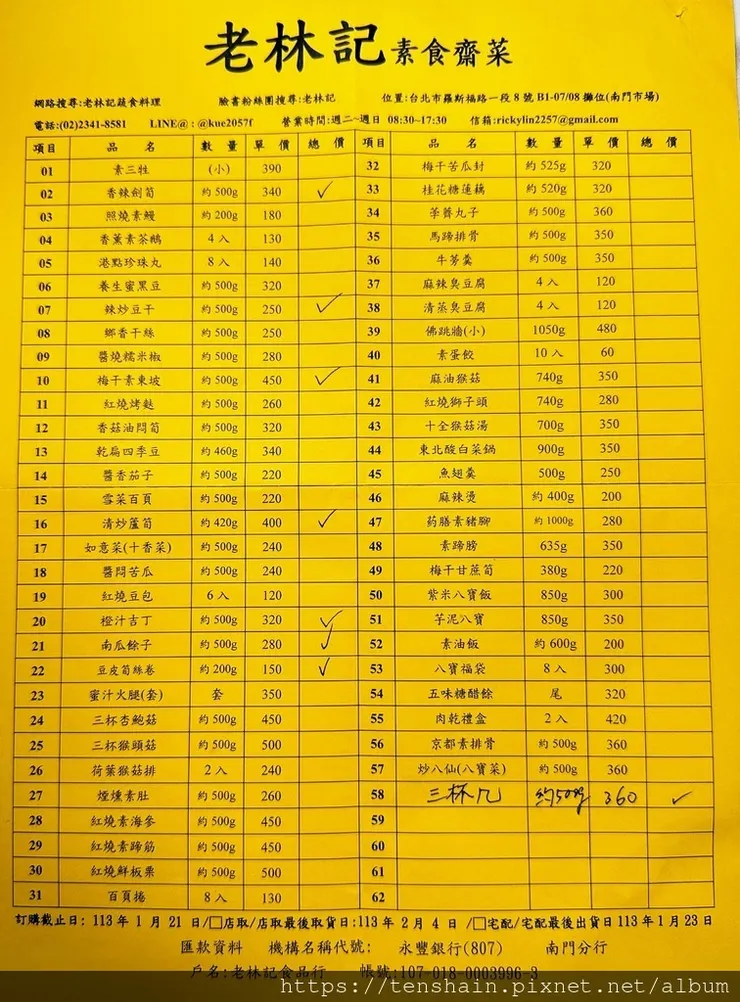 老林記素食齋菜
網路搜尋:老林記蔬食料理 臉書粉絲團搜尋:老林記 位置:台北市羅斯福路一段 8 號 B1-07/08 攤位(南門市場)
電話:(02)2341-8581 LINE@:@kue2057f 營業時間:週二~週日 08:30~17:30 信箱:rickylin2257@gmail.com
項目 品名 數量 單價 總價 項目 品名 數量 單價 總價
01 素三牲 (小) 390 32 梅干苦瓜封 約 525g 320
02 香辣劍筍 約 500g 340 ✓ 33 桂花糖蓮藕 約 520g 320
03 照燒素鰻 約 200g 180 34 荸薺丸子 約 500g 360
04 香薰素茶鵝 4 入 130 35 馬蹄排骨 約 500g 350
05 港點珍珠丸 8 入 140 36 牛蒡羹 約 500g 350
06 養生蜜黑豆 約 500g 320 37 麻辣臭豆腐 4 入 120
07 辣炒豆干 約 500g 250 ✓ 38 清蒸臭豆腐 4 入 120
08 鄉香干絲 約 500g 250 39 佛跳牆(小) 1050g 480
09 醬燒糯米椒 約 500g 280 40 素蛋餃 10 入 60
10 梅干素東坡 約 500g 450 ✓ 41 麻油猴菇 740g 350
11 紅燒烤麩 約 500g 260 42 紅燒獅子頭 740g 280
12 香菇油悶筍 約 500g 320 43 十全猴菇湯 700g 350
13 乾扁四季豆 約 460g 340 44 東北酸白菜鍋 900g 350
14 醬香茄子 約 500g 220 45 魚翅羹 500g 250
15 雪菜百頁 約 500g 220 46 麻辣燙 約 400g 200
16 清炒蘆筍 約 420g 400 ✓ 47 葯膳素豬腳 約 1000g 280
17 如意菜(十香菜) 約 500g 240 48 素蹄膀 635g 350
18 醬悶苦瓜 約 500g 240 49 梅干甘蔗筍 380g 220
19 紅燒豆包 6 入 120 50 紫米八寶飯 850g 300
20 橙汁吉丁 約 500g 320 ✓ 51 芋泥八寶 850g 350
21 南瓜餘子 約 500g 280 ✓ 52 素油飯 約 600g 200
22 豆皮筍絲卷 約 200g 150 ✓ 53 八寶福袋 8 入 300
23 蜜汁火腿(套) 套 350 54 五味糖醋餘 尾 320
24 三杯杏鮑菇 約 500g 450 55 肉乾禮盒 2 入 420
25 三杯猴頭菇 約 500g 500 56 京都素排骨 約 500g 360
26 荷葉猴菇排 2 入 240 57 炒八仙(八寶菜) 約 500g 360
27 煙燻素肚 約 500g 260 58 三杯几 約500g 360 ✓
28 紅燒素海參 約 500g 450 59
29 紅燒素蹄筋 約 500g 450 60
30 紅燒鮮板栗 約 500g 500 61
31 百頁捲 8 入 130 62
訂購截止日: 113 年 1 月 21 日/□店取/店取最後取貨日:113 年 2 月 4 日 /□宅配/宅配最後出貨日 113 年 1 月 23 日
匯款資料 機構名稱代號: 永豐銀行(807) 南門分行
戶名:老林記食品行 帳號:107-018-0003996-3
https://tenshain.pixnet.net/album